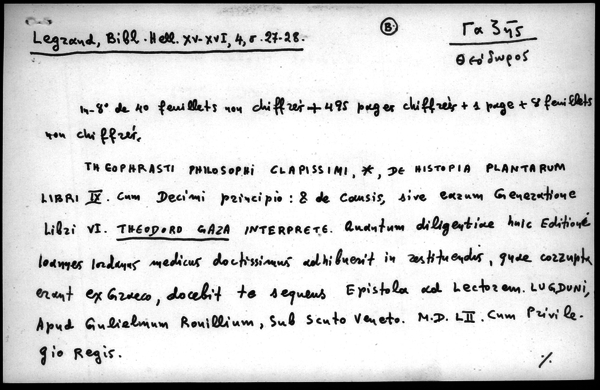 Legrand, Bibl. Hell. XV-XVI, 4, σ. 27-28. Β. Γαζῆς
Θεόδωρος
in-8° de 40 feuillets non chiffrés + 495 pages chiffrés + 1 page + 8 feuillets
non chiffrés.
THEOPHRASTI PHILOSOPHI CLARISSIMI, *, DE HISTORIA PLANTARUM
LIBRI IX. Cum Decimi principio: & de Causis, sive earum Generatione
Libri VI. THEODORO GAZA INTERPRETE. Quantum diligentiae huic Editioni
Ioannes Iordanus medicus doctissimus adhibuerit in restituendis, quae corrupta
erant ex Graeco, docebit te sequens Epistola ad Lectorem. LUGDUNI,
Apud Gulielmum Rouillium, Sub Scuto Veneto. M.D. LII. Cum Privile-
gio Regis. ./.